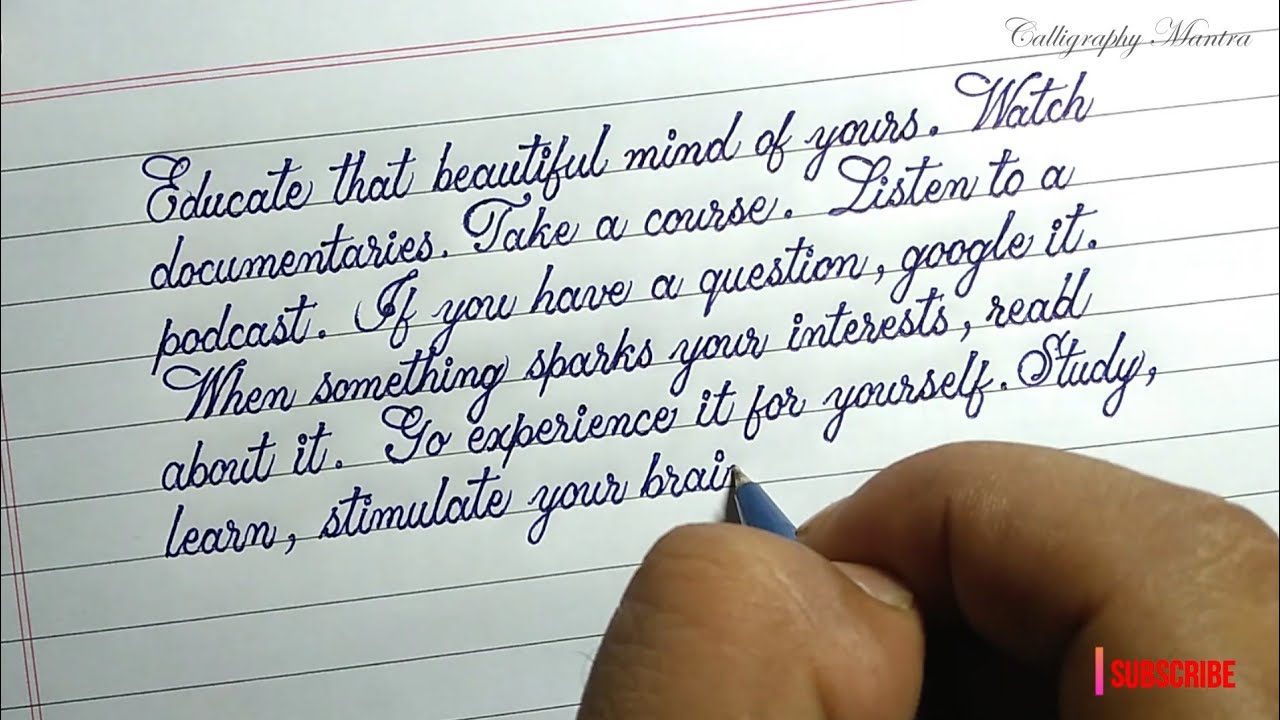 Calligraphy Mantra
Educate that beautiful mind of yours. Watch
documentaries. Take a course. Listen to a
podcast. If you have a question, google it.
When something sparks your interests, read
about it. Go experience it for yourself. Study,
learn, stimulate your brain
SUBSCRIBE